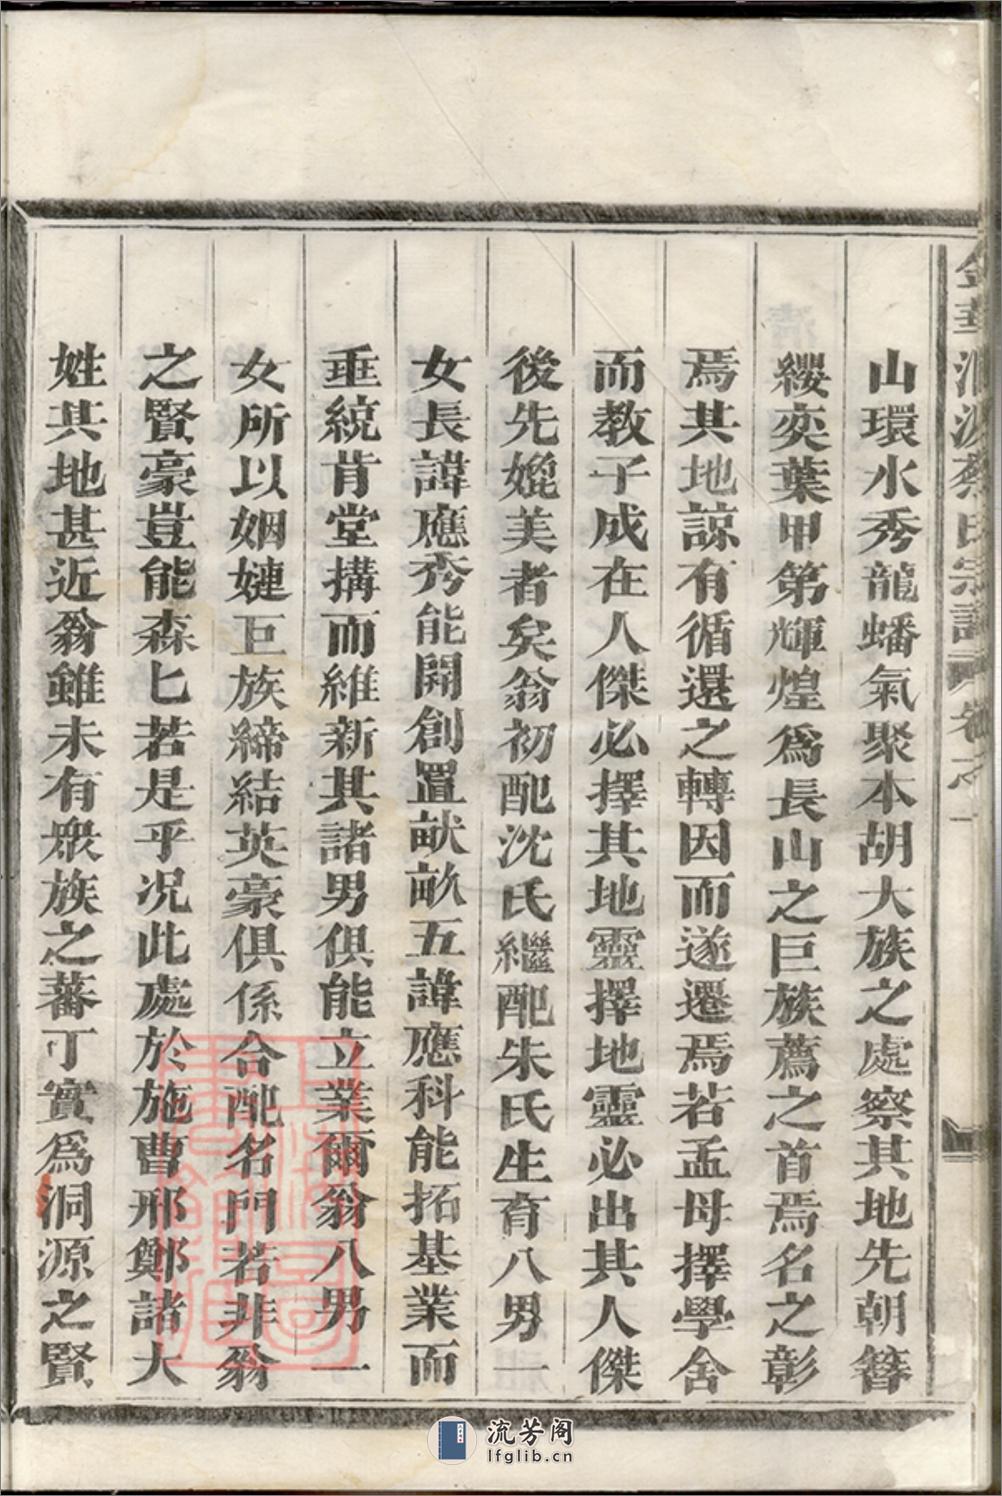 金華洞源蔡氏宗譜 卷之一
山環水秀龍蟠氣聚本胡大族之處察其地先朝簪
纓奕葉甲第輝煌爲長山之巨族薦之首焉名之彰
焉其地諒有循還之轉因而遂遷焉若孟母擇學舍
而教子成在人傑必擇其地靈擇地靈必出其人傑
後先媲美者矣翁初配沈氏繼配朱氏生育八男一
女長諱應秀能開創置畎畝五諱應科能拓基業而
垂統肯堂搆而維新其諸男俱能立業爾翁八男一
女所以姻婕巨族締結英豪俱係合配名門若非翁
之賢豪豈能森匕若是乎况此處於施曹邢鄭諸大
姓其地甚近翁雖未有衆族之蕃丁實爲洞源之賢
流芳阁
lfglib.cn